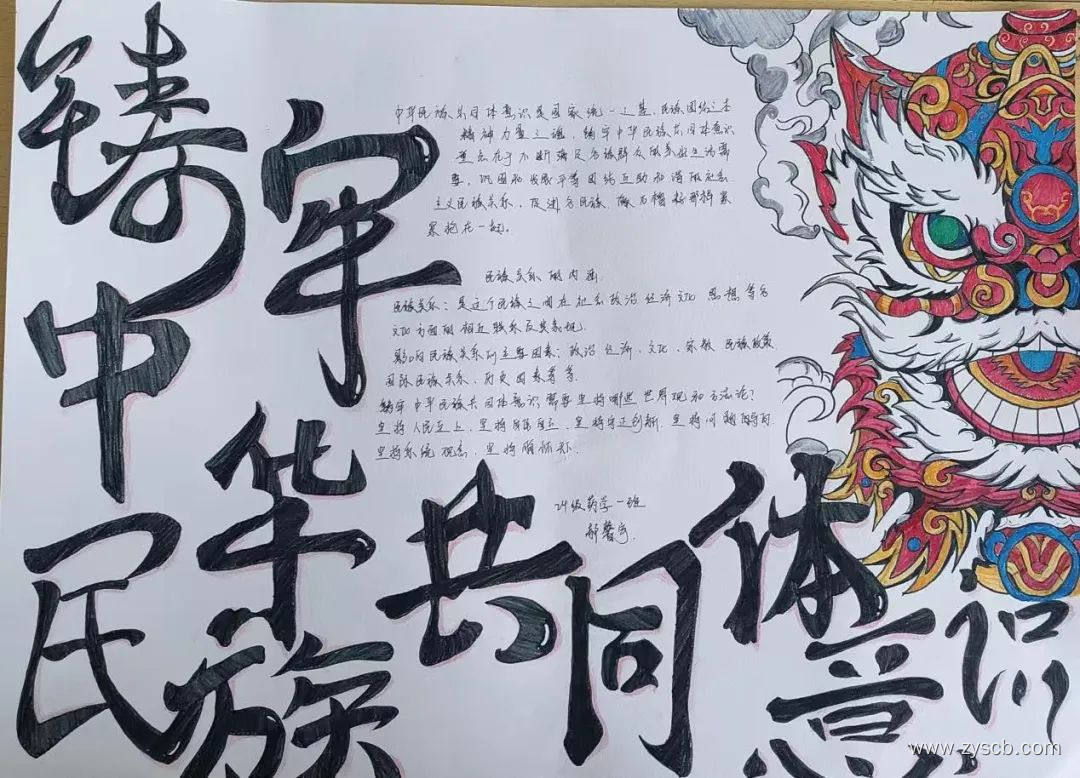 铸牢
中华
民族
共同体
意识
中华民族共同体意识是国家统一之基、民族团结之本
精神力量之魂、铸牢中华民族共同体意识
重点在于不断满足各族群众的美好生活需
要,巩固和发展平等团结互助和谐的社会
主义民族关系,促进各民族像石榴籽那样紧
紧抱在一起。
民族关系的内涵
民族关系:是这个民族之间在社会政治经济文化思想等各
文化方面的相近联系及其
影响民族关系的主要因素:政治经济、文化、宗教、民族政策
国际民族关系,历史因素等等
铸牢中华民族共同体意识需要坚持哪些世界观和方法论?
坚持人民至上、坚持自信自立、坚持守正创新、坚持问题导向
坚持系统观念、坚持胸怀
24级药学一班
www.zyscb.com